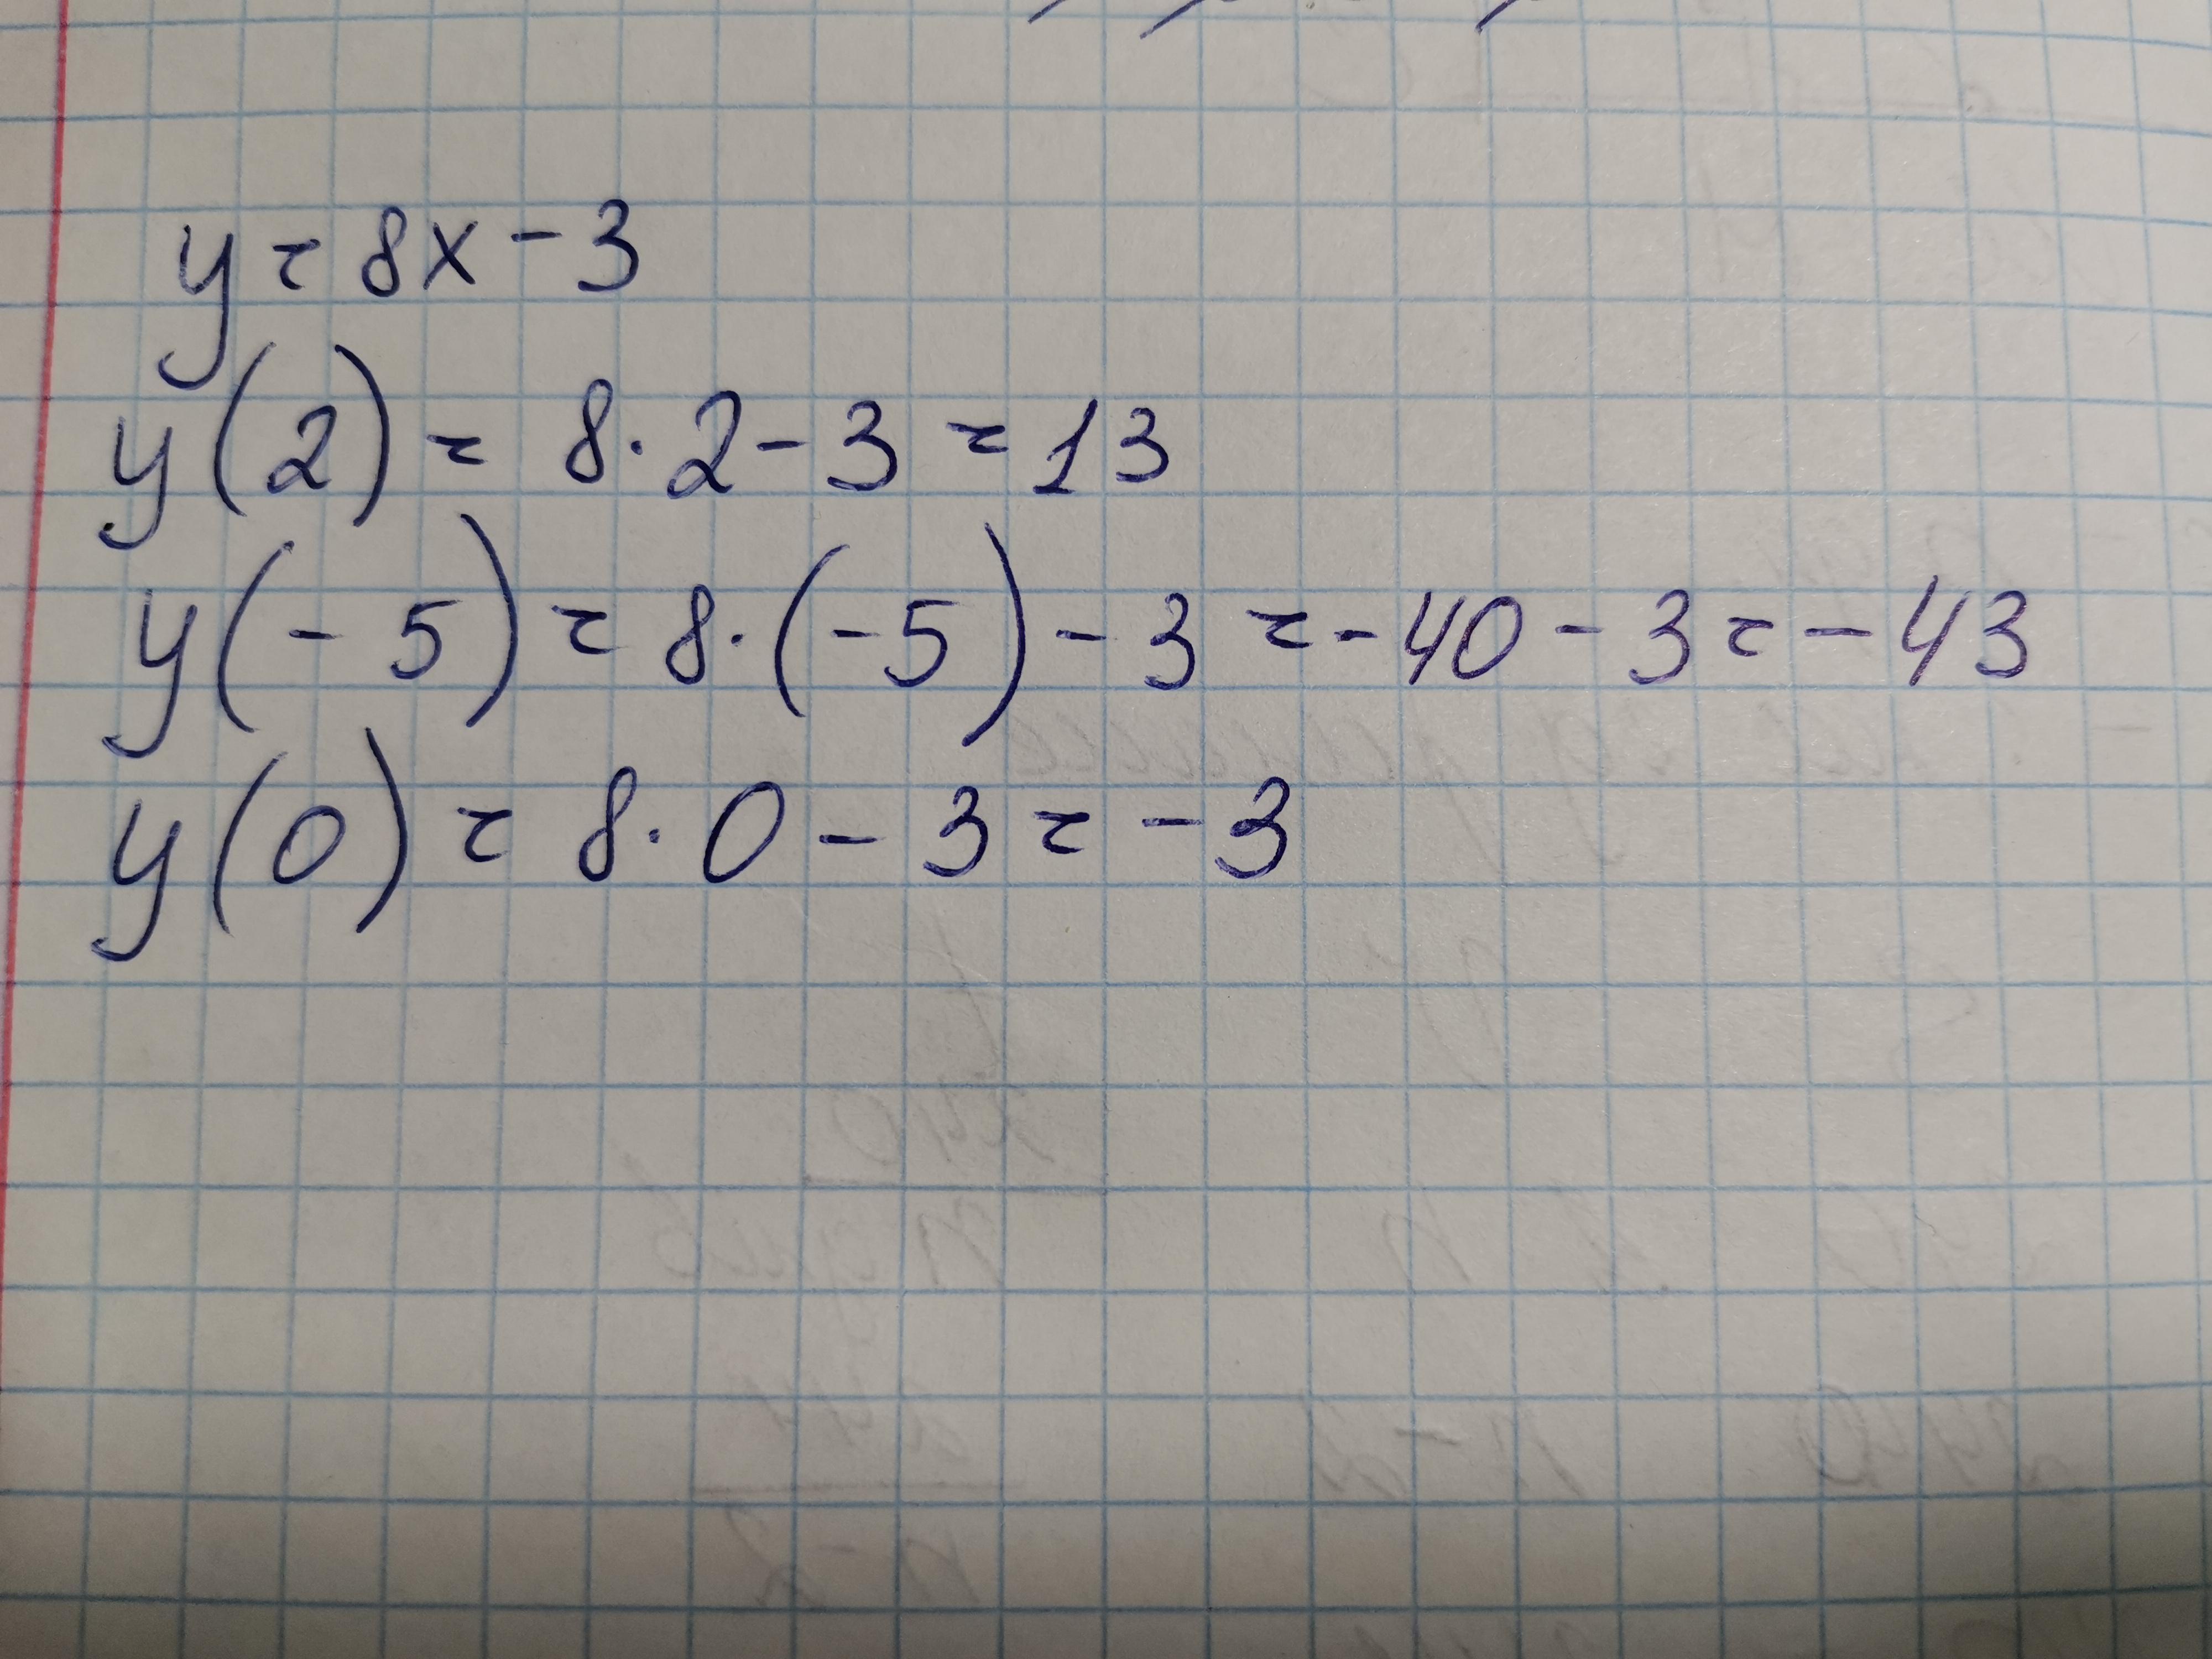 y = 8x - 3
y(2) = 8 · 2 - 3 = 13
y(-5) = 8 · (-5) - 3 = -40 - 3 = -43
y(0) = 8 · 0 - 3 = -3